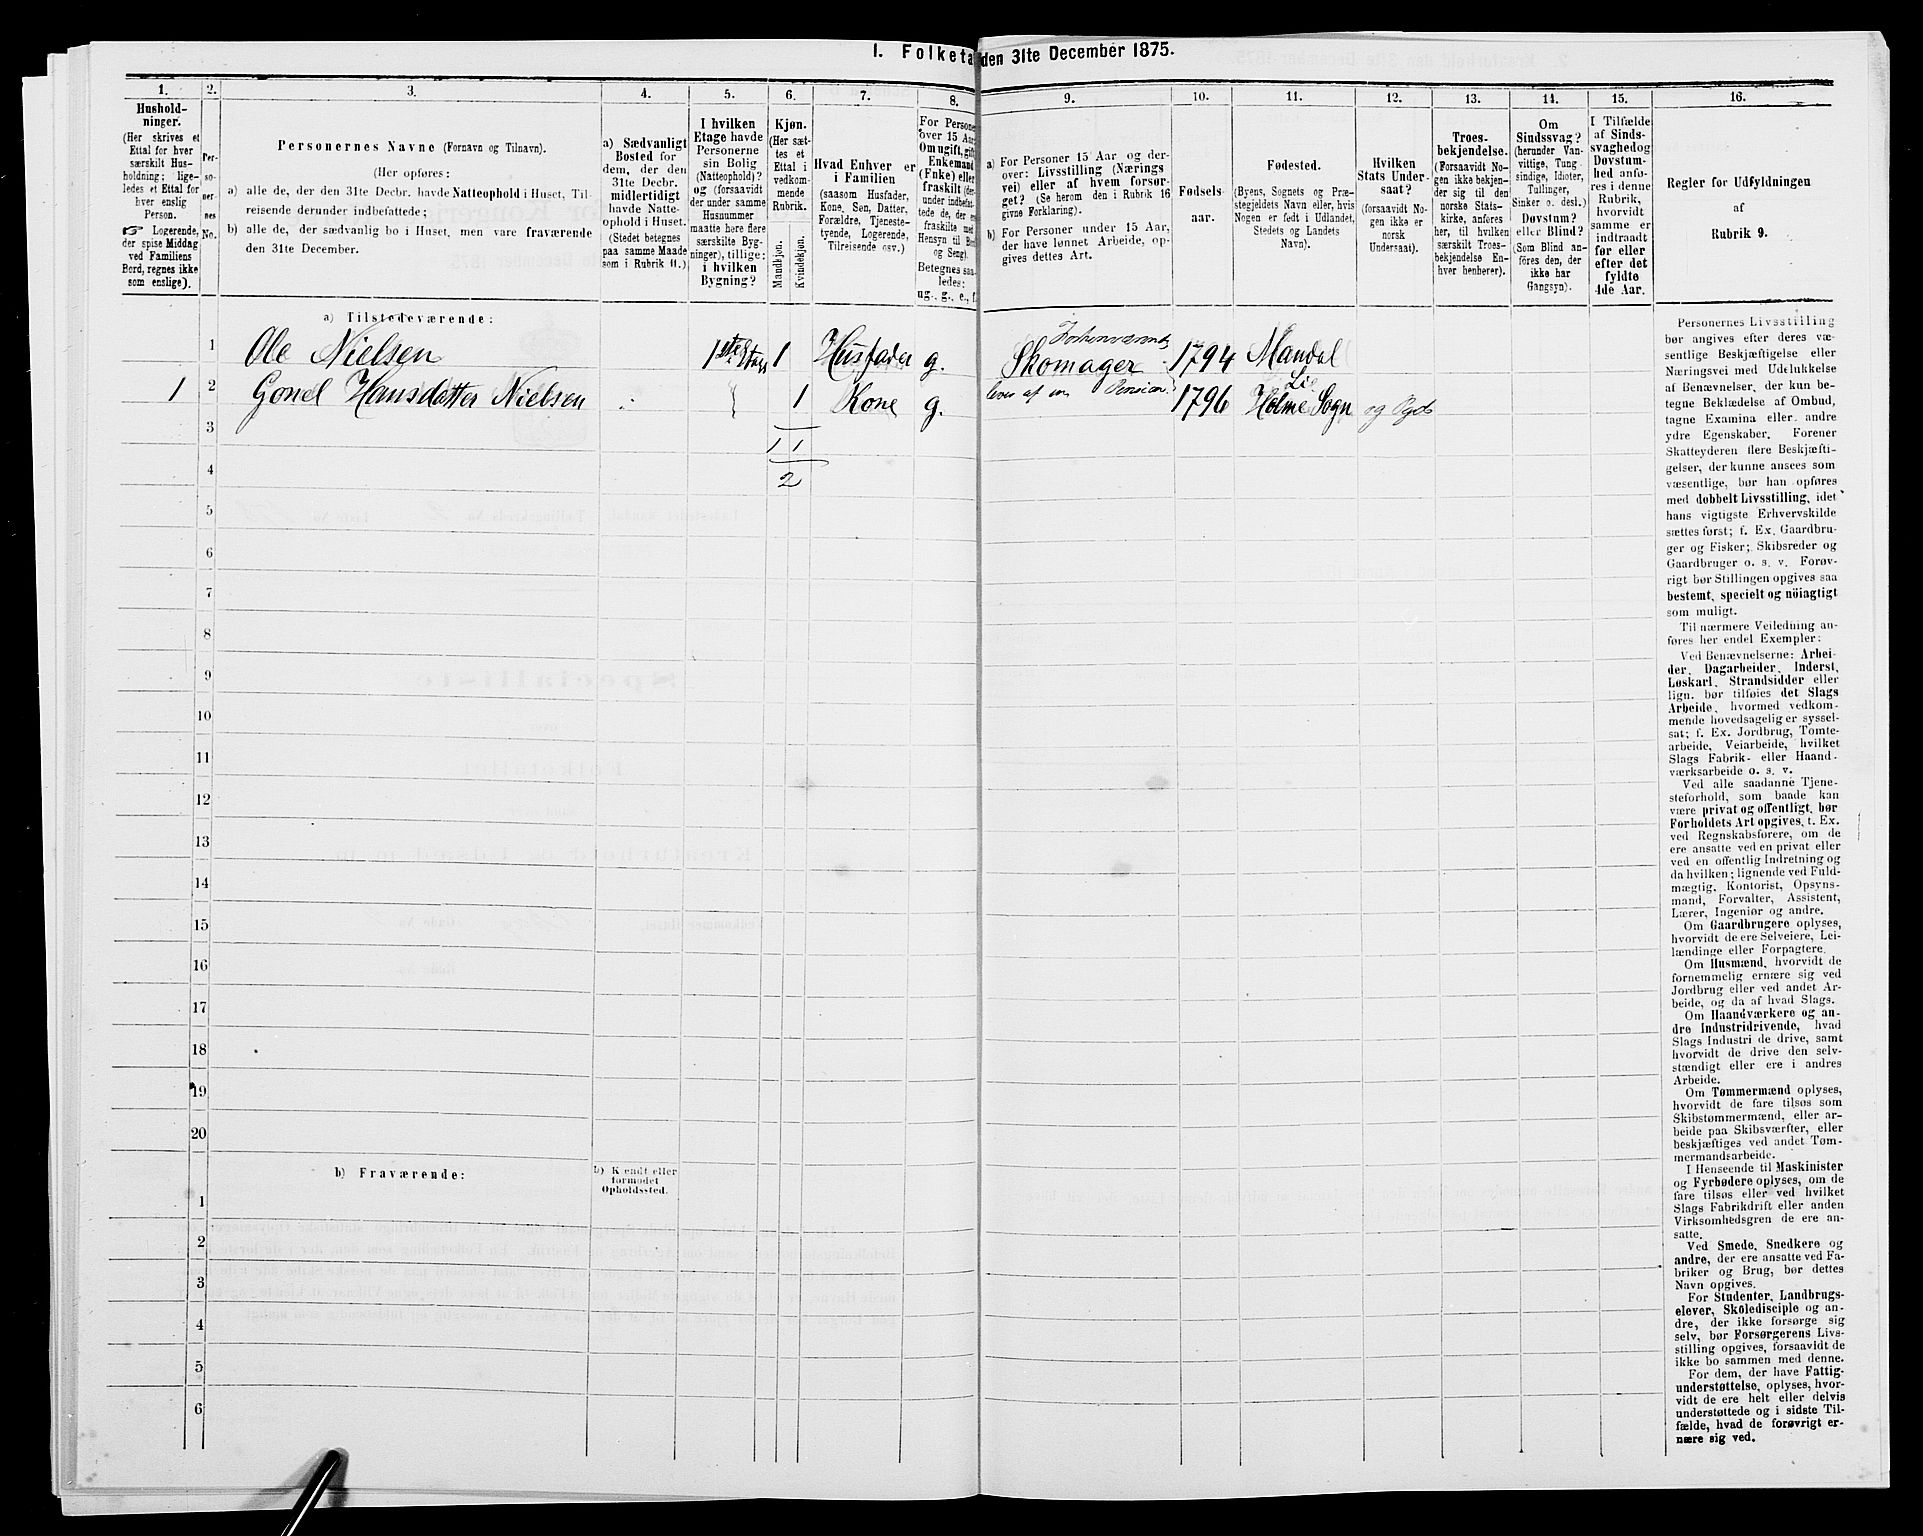 1. Folketa den 31te December 1875.
1. 2. 3. 4. 5. 6. 7. 8. 9. 10. 11. 12. 13. 14. 15. 16.
Hushold-
ninger.
(Her skrives et
Ettal for hver
særskilt Hus-
holdning; lige-
ledes et Ettal for
hver enslig
Person.
☞ Logerende,
der spise Middag
ved Familiens
Bord, regnes ikke
som enslige).
Per-
so-
ner-
nes
No.
Personernes Navne (Fornavn og Tilnavn).
(Her opføres:
a) alle de, der den 31te Decbr. havde Natteophold i Huset, Til-
reisende derunder indbefattede;
b) alle de, der sædvanlig bo i Huset, men vare fraværende
den 31te December.
a) Sædvanligt
Bosted for
dem, der den
31te Decbr.
midlertidigt
havde Natte-
ophold i Huset.
(Stedet betegnes
paa samme Maade
som i Rubrik 11.)
I hvilken
Etage havde
Personerne
sin Bolig
(Natteophold)?
og (forsaavidt
der under samme
Husnummer
maatte høre flere
særskilte Byg-
ninger), tillige:
i hvilken
Bygning?
Kjøn.
(Her sæt-
tes et
Ettal i
vedkom-
mende
Rubrik.
Mandkjøn.
Kvindekjøn.
Hvad Enhver er
i Familien
(saasom Husfader,
Kone, Søn, Datter,
Forældre, Tjeneste-
tyende, Logerende,
Tilreisende osv.)
For Persone
over 15 Aar
Om ugift, gift
Enkemand
(Enke) eller
fraskilt (der-
under indbefat-
tede de, der er
fraskilte med
Hensyn til Bo
og Seng).
Betegnes saa-
ledes:
ug., g., e., f.
a) For Personer 15 Aar og der-
over: Livsstilling (Nærings-
vei) eller af hvem forsør-
get? (Se herom den i Rubrik 16
givne Forklaring).
b) For Personer under 15 Aar,
der have lønnet Arbeide, op-
gives dettes Art.
Fødsels-
aar.
Fødested.
(Byens, Sognets og Præ-
stegjeldets Navn eller, hvis
Nogen er født i Udlandet,
Stedets og Landets
Navn).
Hvilken
Stats Under-
saat?
(forsaavidt No-
gen ikke er
norsk
Undersaat).
Troes-
bekjendelse.
(Forsaavidt No-
gen ikke bekjen-
der sig til den
norske Stats-
kirke, anføres
her, til hvilken
særskilt Troes-
bekjendelse En-
hver henhører).
Om
Sindssvag?
(herunder Van-
vittige, Tung-
sindige, Idioter,
Tullinger,
Sinker o. desl.)
Døvstum?
eller Blind?
(Som Blind an-
føres den, der
ikke har
Gangsyn).
I Tilfælde
af Sinds-
svaghed og
Døvstum-
hed anfø-
res i denne
Rubrik,
hvorvidt
samme er
indtraadt
før eller
efter det
fyldte
4de Aar.
Regler for Udfyldningen
af
Rubrik 9.
a) Tilstedeværende:
1 Ole Nielsen 1ste Etage 1 Husfader g. Skomager 1794 Mandal
1 2 Gonel Hansdatter Nielsen 1 Kone g. lever af en Pension 1796 Holme Sogn og Pgd
3
1 1
4
2
5
6
7
8
9
10
11
12
13
14
15
16
17
18
19
20
b) Fraværende:
b) Kjendt eller
formodet
Opholdssted.
1
2
3
4
5
6
Personernes Livsstilling
bør angives efter deres væ-
sentlige Beskjæftigelse eller
Næringsvei med Udelukkelse
af Benævnelser, der kun be-
tegne Beklædelse af Ombud,
tagne Examina eller andre
ydre Egenskaber. Forener
Skatteyderen flere Beskjæfti-
gelser, der kunne ansees som
væsentlige, bør han opføres
med dobbelt Livsstilling, idet
hans vigtigste Erhvervskilde
sættes først; f. Ex. Gaardbru-
ger og Fisker; Skibsreder og
Gaardbruger o. s. v. Forøv-
rigt bør Stillingen opgives saa
bestemt, specielt og nöiagtigt
som muligt.
Til nærmere Veiledning an-
føres her endel Exempler:
Ved Benævnelserne: Arbei-
der, Dagarbeider, Inderst,
Løskarl, Strandsidder eller
lign. bør tilføies det Slags
Arbeide, hvormed vedkom-
mende hovedsagelig er syssel-
sat; f. Ex. Jordbrug, Tomte-
arbeide, Veiarbeide, hvilket
Slags Fabrik- eller Haand-
værksarbeide o. s. v.
Ved alle saadanne Tjene-
steforhold, som baade kan
være privat og offentligt, bør
Forholdets Art opgives, t. Ex.
ved Regnskabsførere, om de
ere ansatte ved en privat eller
ved en offentlig Indretning og
da hvilken; lignende ved Fuld-
mægtig, Kontorist, Opsyns-
mand, Forvalter, Assistent,
Lærer, Ingeniør og andre.
Om Gaardbrugere oplyses,
hvorvidt de ere Selveiere, Lei-
lændinge eller Forpagtere.
Om Husmænd, hvorvidt de
fornemmelig ernære sig ved
Jordbrug eller ved andet Ar-
beide, og da af hvad Slags.
Om Haandværkere og an-
dre Industridrivende, hvad
Slags Industri de drive, samt
hvorvidt de drive den selv-
stændigt eller ere i andres
Arbeide.
Om Tømmermænd oplyses,
hvorvidt de fare tilsøs som
Skibstømmermænd, eller ar-
beide paa Skibsværfter, eller
beskjæftiges ved andet Tøm-
mermandsarbeide.
I Henseende til Maskinister
og Fyrbødere oplyses, om de
fare tilsøs eller ved hvilket
Slags Fabrikdrift eller anden
Virksomhedsgren de ere an-
satte.
Ved Smede, Snedkere og
andre, der ere ansatte ved Fa-
briker og Brug, bør dettes
Navn opgives.
For Studenter, Landbrugs-
elever, Skoledisciple og an-
dre, der ikke forsørge sig
selv, bør Forsørgerens Livs-
stilling opgives, forsaavidt de
ikke bo sammen med denne.
For dem, der have Fattig-
understøttelse, oplyses, hvor-
vidt de ere helt eller delvis
understøttede og i sidste Til-
fælde, hvad de forøvrigt er-
nære sig ved.